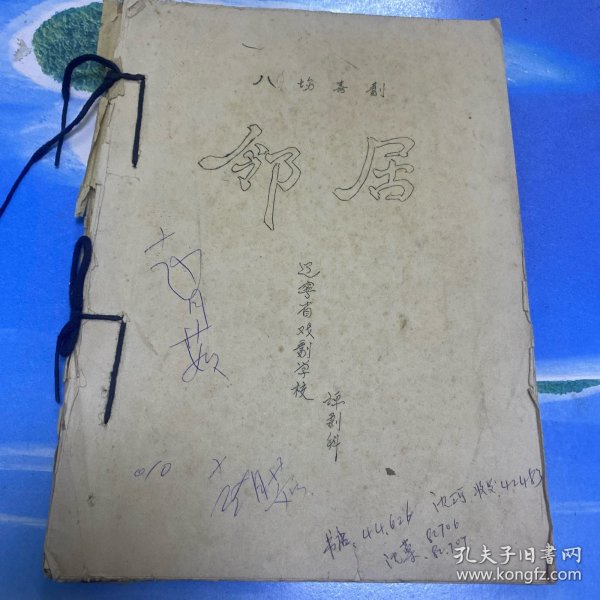 八场喜剧
邻居
辽宁省戏剧学校
评剧科
010
书店:44.626
沈河 收发:42483
沈葶:82706
82.707
孔夫子旧书网
www.kongfz.com